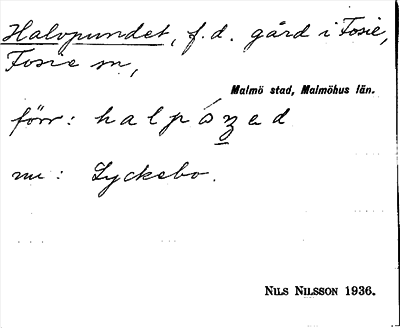 Halvpundet, f.d. gård i Fosie,
Fosie sn,
Malmö stad, Malmöhus län.
förr: halpózed
nu: Lyckebo.
NILS NILSSON 1936.